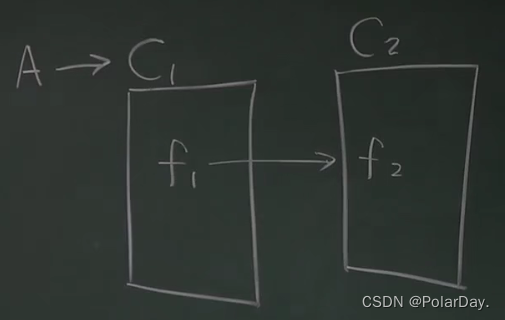 A → C₁
C₂
f₁ → f₂
CSDN @PolarDay.